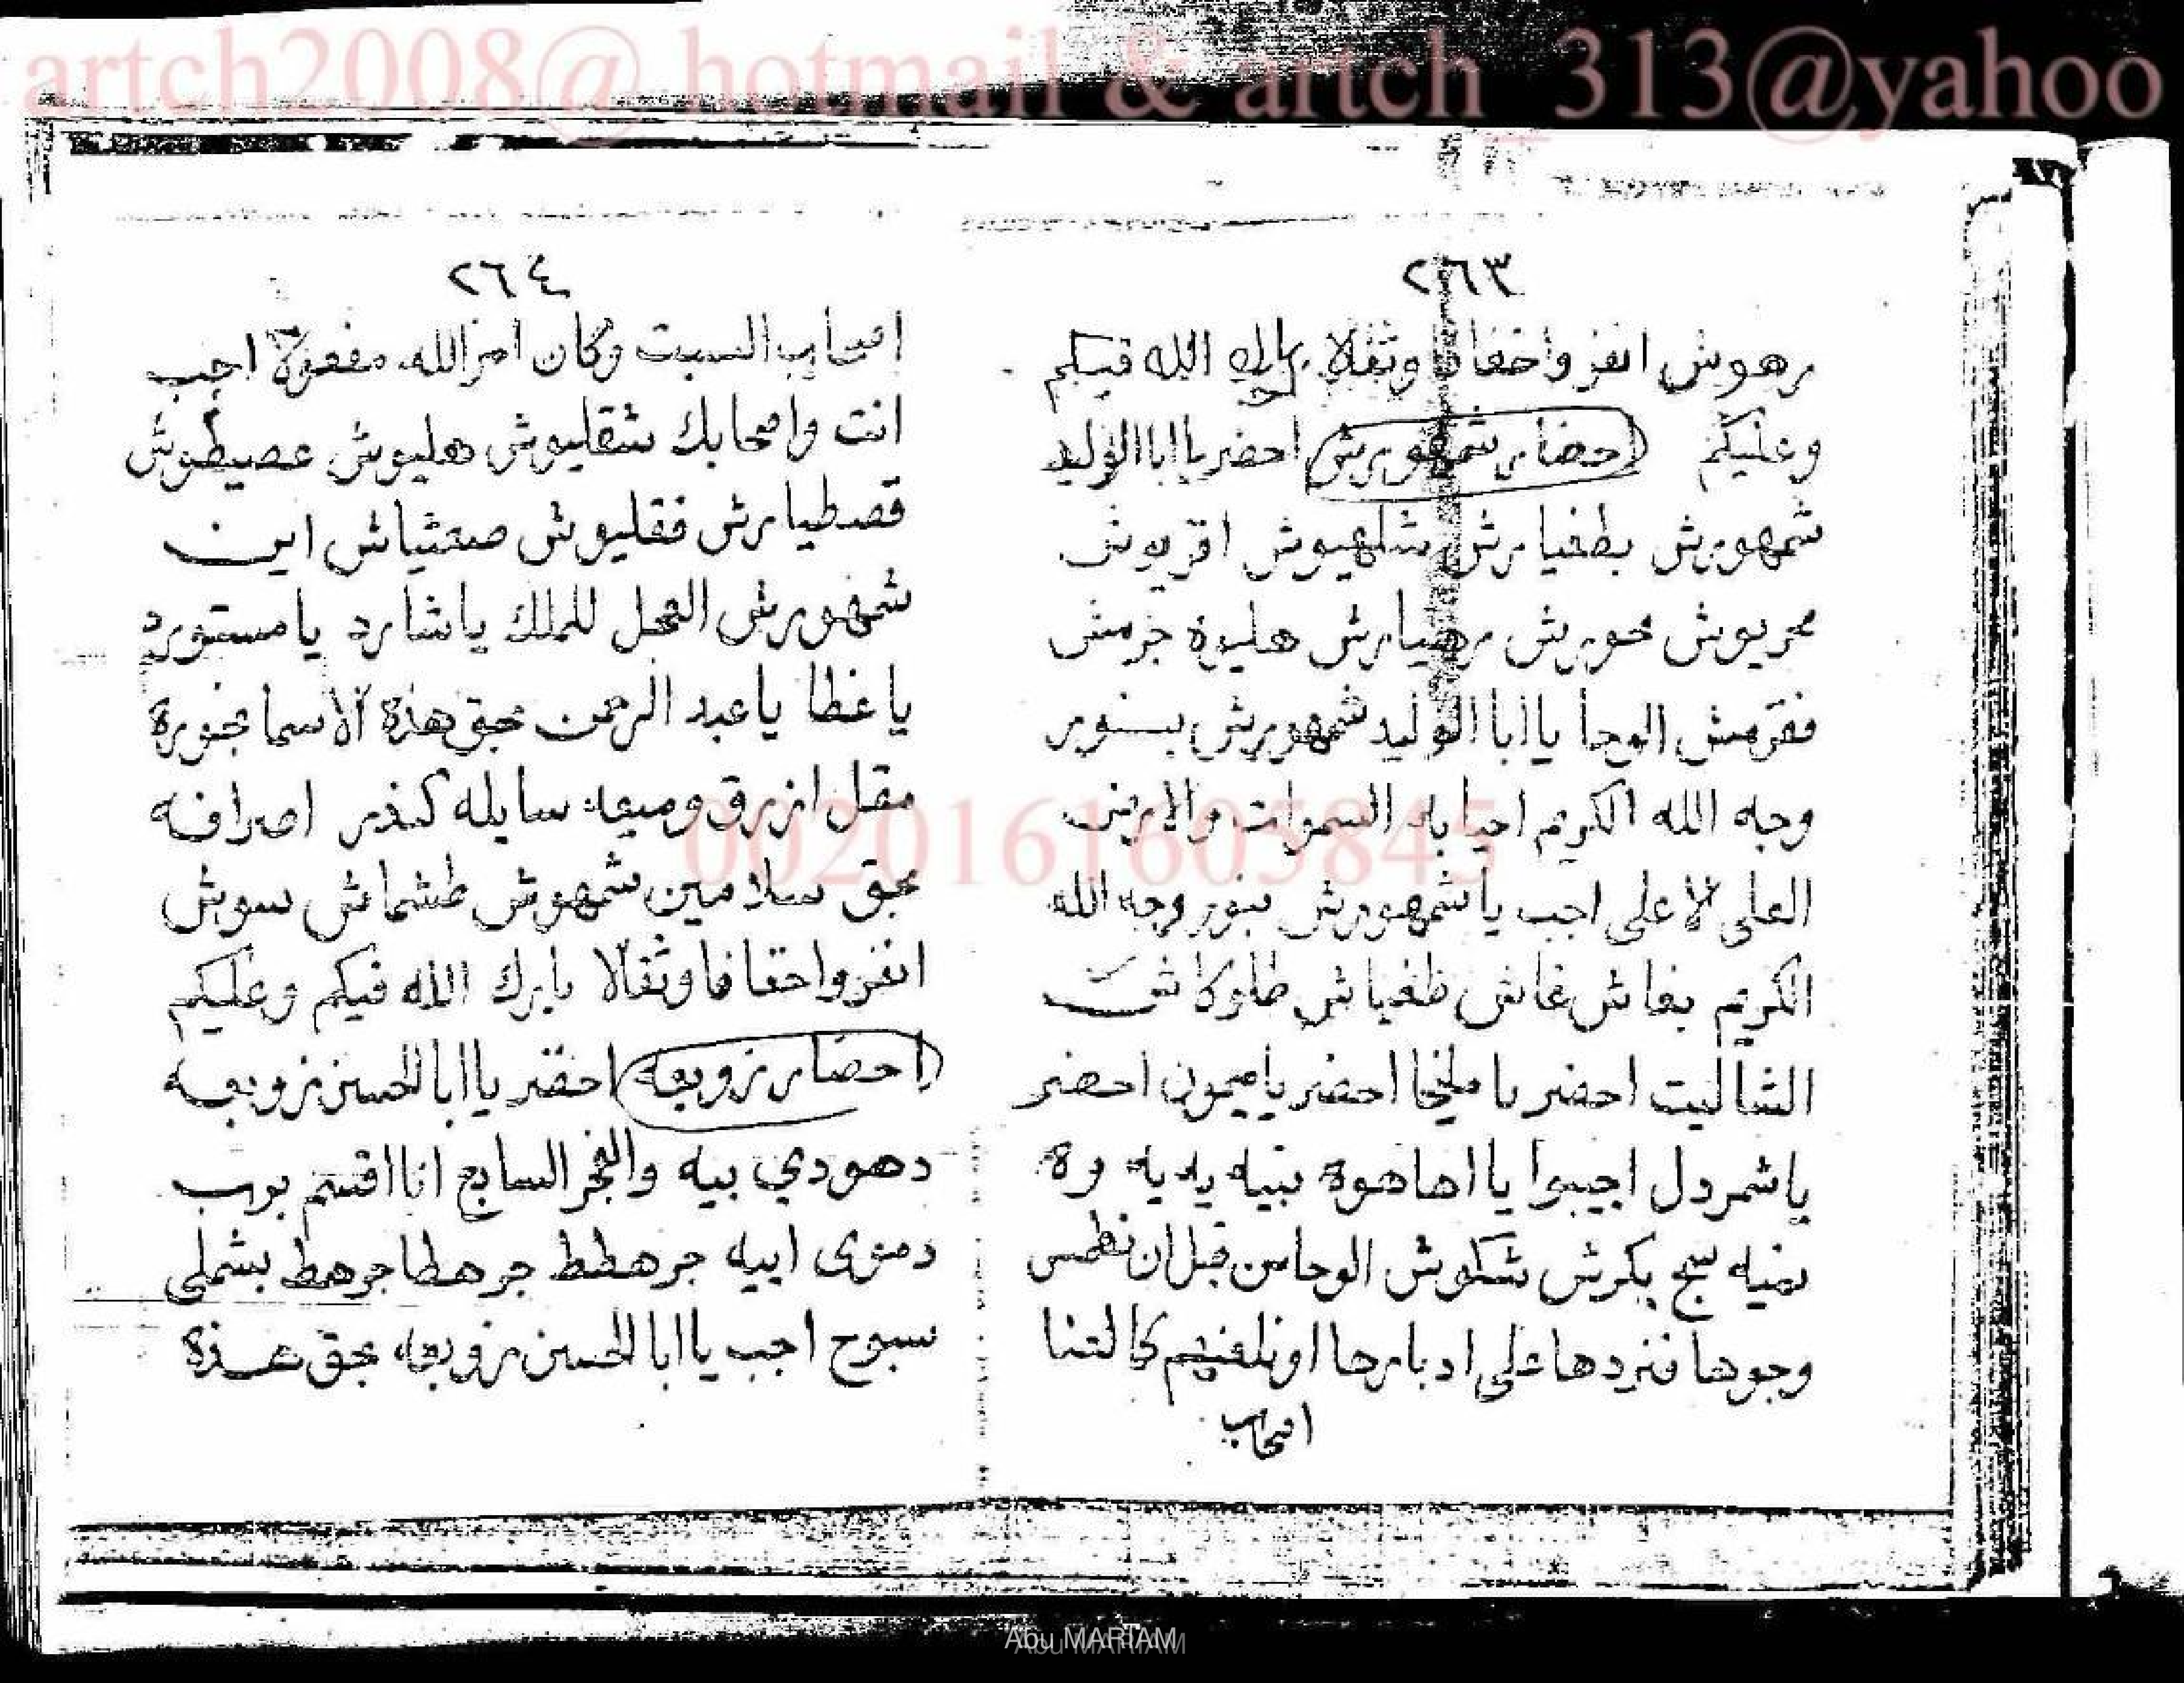 artch2008@ hotmail & artch_313@yahoo
٢٦٣
رهوش انفروا خفافا وثقلا بارك الله فيكم
وعليكم احضار شمهورش احضر يا ابا الوليد
شمهورش بطغيارش شلهيوش اقربوش
محربوش محورش رهيارش هليوة خرمش
فقرمش الوحا يا ابا الوليد شمهورش بسور
وجه الله الكريم احيا به السموات والارض
العلى لاعلى اجب يا شمهورش بنور وجه الله
الكريم بغاش غاش طغياش طلوكاش
الشاليت احضر يا مليخا احضر يا ميمون احضر
يا شمردل اجيبوا يا اهاهوة بنيه يه يه وة
بكرش شكوش الوحا من قبل ان نطمس
وجوها فنردها على ادبارها او نلعنهم كما لعنا
اصحاب
٢٦٤
اصحاب السبت وكان امر الله مفعولا اجب
انت واصحابك شقليوش هليوش عصيطوش
قصطيارش فقليوش صعثياش اين
شمهورش العجل للملك يا شارد يا مستورد
يا غطا يا عبد الرحمن بحق هذه الاسما بخورة
مقل ازرق وميعه سايله كندر اصرافه
بحق سلامين شمهوش طشماش سوبش
انفروا خفافا وثقالا بارك الله فيكم وعليكم
احضار زوبعه احضر يا ابا الحسن زوبعه
دهودي بيه والفجر السابع انا اقسم برب
دمزى ابيه جرهطط جرهطا جرهط بشملى
سبوح اجب يا ابا الحسن زوبعه بحق هذة
0020161605845
Abu MARIAM